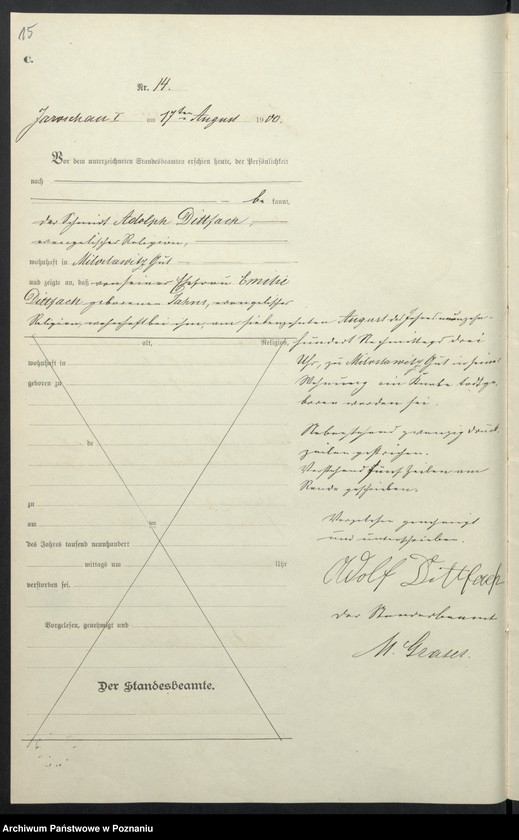 15
C.
Nr. 14.
Jaroschau I am 17ten August 1900.
Vor dem unterzeichneten Standesbeamten erschien heute, der Persönlichkeit
nach
be kannt,
der Schmidt Adolph Dittfach,
evangelischer Religion,
wohnhaft in Miloslawitz Gut
und zeigte an, daß von seiner Ehefrau Emilie
Dittfach geborenen Jahns, evangelischer
Religion, wohnhaft bei ihm, am siebenzehnten August des Jahres neunzehn-
alt, Religion,
wohnhaft in
geboren zu
de
zu
am ten
des Jahres tausend neunhundert
mittags um Uhr
verstorben sei.
Vorgelesen, genehmigt und
Der Standesbeamte.
hundert Nachmittags drei
Uhr, zu Miloslawitz Gut in seiner
Wohnung ein Knabe todtge-
boren worden sei.
Nebenstehend zwanzig Druck-
zeilen gestrichen.
Vorstehend fünf Zeilen am
Rande geschrieben.
Vorgelesen genehmigt
und unterschrieben.
Adolf Dittfach
Der Standesbeamte
M. Graser.
Archiwum Państwowe w Poznaniu